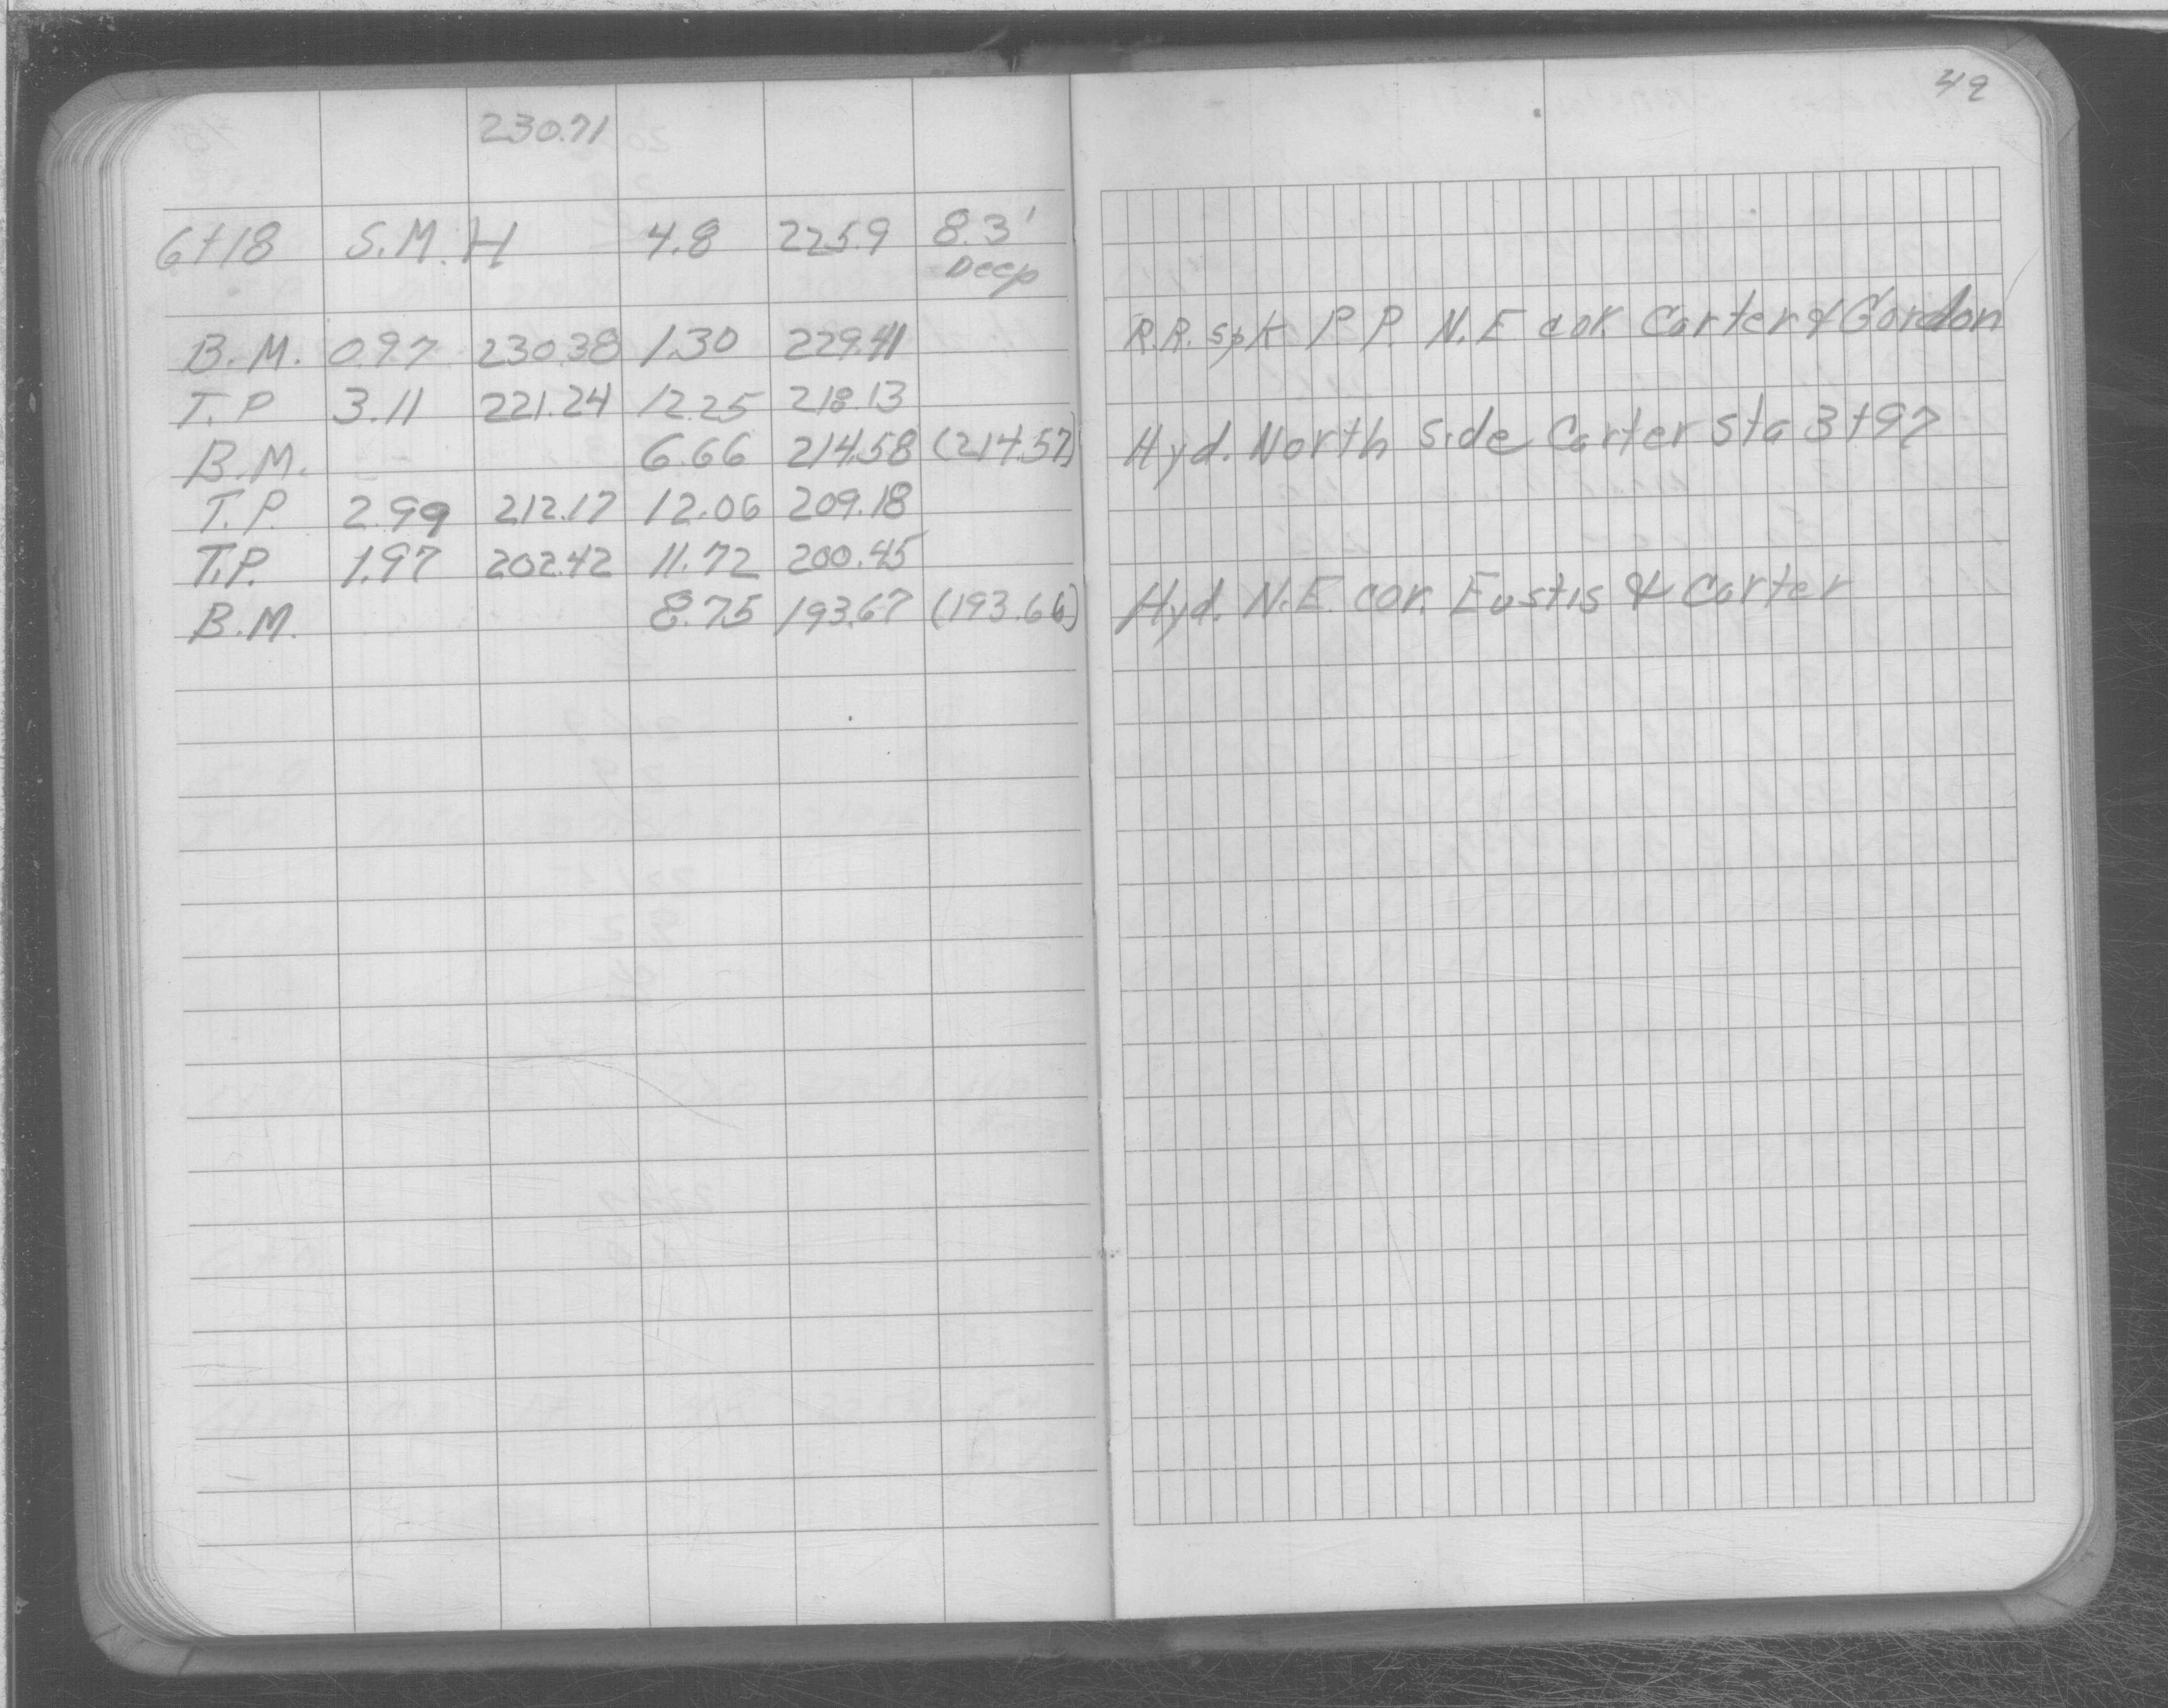 49
230.71
6+18 S.M.H 4.8 225.9 8.3'
Deep
B.M. 0.97 230.38 1.30 229.41 R.R. spk P.P. N.E cor. Carter & Gordon
T.P 3.11 221.24 12.25 218.13
B.M. 6.66 214.58 (214.57) Hyd. North Side Carter Sta 3+97
T.P. 2.99 212.17 12.06 209.18
T.P. 1.97 202.42 11.72 200.45
B.M. 8.75 193.67 (193.66) Hyd. N.E. cor. Eustis & Carter